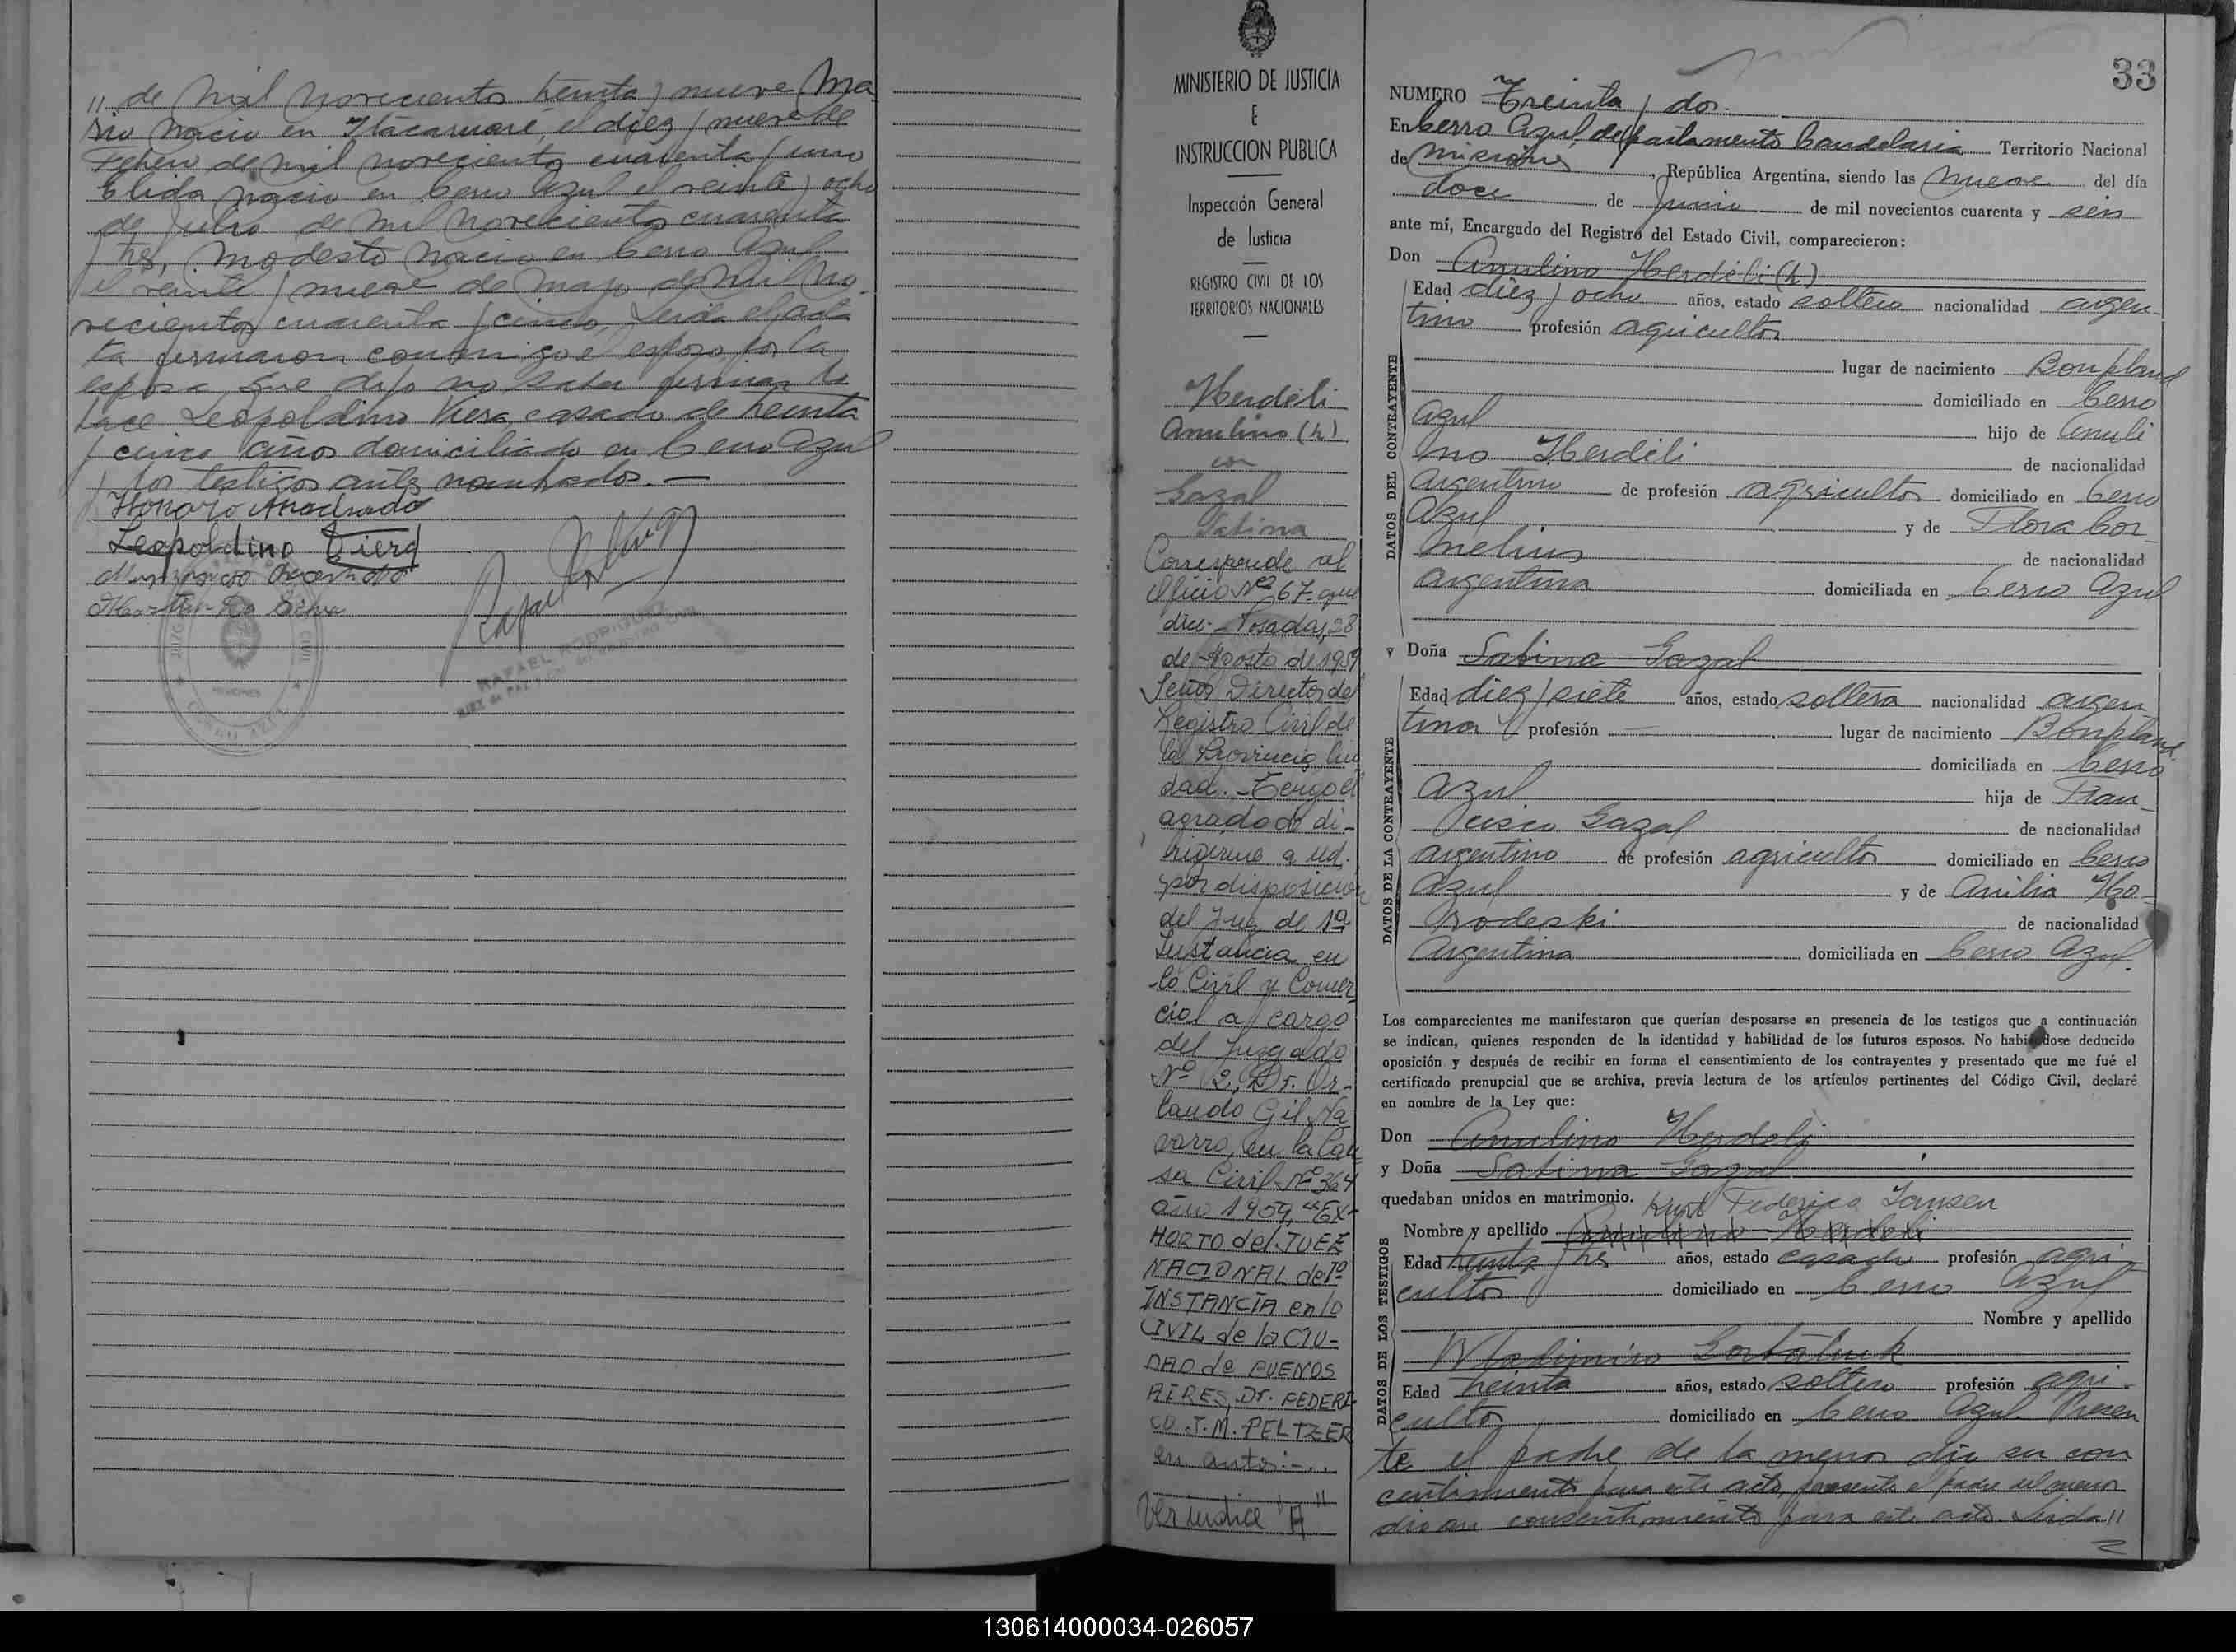 " de mil novecientos treinta y nueve, Ma-
rio nacio en Itacaruaré, el diez y nueve de
Febrero de mil novecientos cuarenta y uno
Elida nacio en Cerro Azul el veinte y ocho
de Julio de mil novecientos cuarenta
y tres, Modesto nacio en Cerro Azul
el veinte y nueve de mayo de mil no-
vecientos cuarenta y cinco, Leida el acta
firmaron conmigo el esposo por la
esposa que dijo no saber firmar lo
hace Leopoldino Viera, casado de treinta
y cinco años domiciliado en Cerro Azul
y los testigos antes nombrados.-
Honorio Andrade
Leopoldino Viera
Da Silva
RAFAEL RODRIGUEZ
JUEZ de PAZ
CERRO AZUL
MINISTERIO DE JUSTICIA
E
INSTRUCCION PUBLICA
Inspección General
de Justicia
REGISTRO CIVIL DE LOS
TERRITORIOS NACIONALES
Herdéli
Anulino (h)
con
Gazal
Sabina
Corresponde al
Oficio Nº 67 que
dice: Posadas, 28
de Agosto de 1959
Señor Director del
Registro Civil de
la Provincia, Ciu
dad.- Tengo el
agrado de di-
rigirme a Ud.
por disposición
del Juez de 1ª
Instancia en
lo Civil y Comer
cial a cargo
del Juzgado
Nº 2, Dr. Or-
lando Gil Na
varro, en la Cau
sa Civil Nº 364
año 1959, "EX-
HORTO del JUEZ
NACIONAL de 1º
INSTANCIA en lo
CIVIL de la CIU-
DAD de BUENOS
AIRES, Dr. FEDERI-
CO J.M. PELTZER
en autos:-..
Ver indice "A"
33
NUMERO Treinta y dos.
En Cerro Azul, departamento Candelaria Territorio Nacional
de Misiones, República Argentina, siendo las nueve del día
doce de Junio de mil novecientos cuarenta y seis
ante mí, Encargado del Registro del Estado Civil, comparecieron:
Don Anulino Herdéli (h)
DATOS DEL CONTRAYENTE
Edad diez y ocho años, estado soltero nacionalidad argen-
tino profesión agricultor
lugar de nacimiento Bonpland
domiciliado en Cerro
Azul hijo de Anuli
no Herdéli de nacionalidad
Argentino de profesión agricultor domiciliado en Cerro
Azul y de Flora Cor-
nelius de nacionalidad
argentina domiciliada en Cerro Azul
y Doña Sabina Gazal
DATOS DE LA CONTRAYENTE
Edad diez y siete años, estado soltera nacionalidad argen
tina profesión lugar de nacimiento Bonpland
domiciliada en Cerro
Azul hija de Fran-
cisco Gazal de nacionalidad
argentino de profesión agricultor domiciliado en Cerro
Azul y de Ho-
rodeski de nacionalidad
Argentina domiciliada en Cerro Azul.
Los comparecientes me manifestaron que querían desposarse en presencia de los testigos que a continuación
se indican, quienes responden de la identidad y habilidad de los futuros esposos. No habiéndose deducido
oposición y después de recibir en forma el consentimiento de los contrayentes y presentado que me fué el
certificado prenupcial que se archiva, previa lectura de los artículos pertinentes del Código Civil, declaré
en nombre de la Ley que:
Don Anulino Herdeli
y Doña Sabina Gazal
quedaban unidos en matrimonio. Kurt Federico Jansen
DATOS DE LOS TESTIGOS
Nombre y apellido Anulino Herdeli
Edad treinta y tres años, estado casado profesión agri-
cultor domiciliado en Cerro Azul
Nombre y apellido
Wladimiro
Edad treinta años, estado soltero profesión agri-
cultor domiciliado en Cerro Azul. Presen
te el padre de la menor dio su con
centimiento para este acto, presente el padre del menor
dio su consentimiento para este acto. Leida "
130614000034-026057